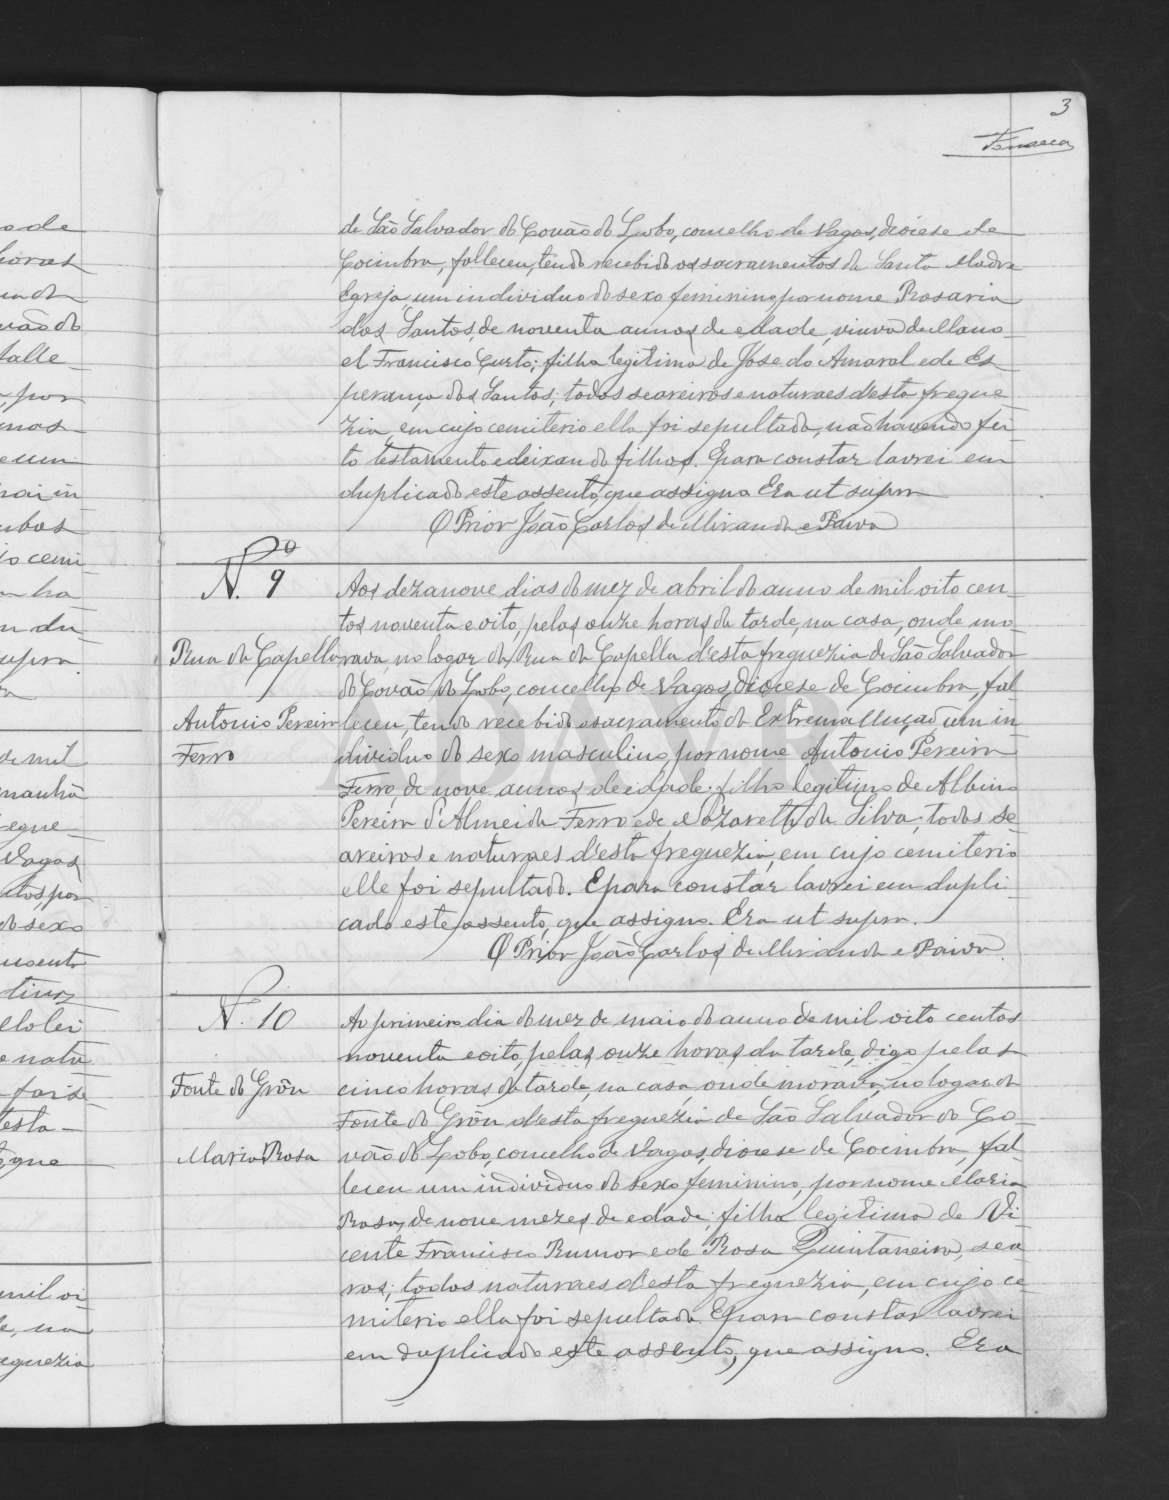 3
Fonseca
de São Salvador do Covão do Lobo, concelho de Vagos, diocese de
Coimbra, falleceu, tendo recebido os sacramentos da Santa Madre
Egreja, um individuo do sexo feminino por nome Rosaria
dos Santos, de noventa annos de edade, viuva de Mano-
el Francisco Curto; filha legitima de José do Amaral e de Es-
perança dos Santos; todos seareiros e naturaes d'esta fregue-
zia, em cujo cemiterio ella foi sepultada, não havendo fei-
to testamento e deixando filhos. E para constar lavrei em
duplicado este assento, que assigno Era ut supra
O Prior João Carlos de Miranda e Paiva
N.º 9
Rua da Capella
Antonio Pereira
Ferro
Aos dezanove dias do mez de abril do anno de mil oito cen-
tos noventa e oito, pelas onze horas da tarde, na casa, onde mo-
rava, no logar da Rua da Capella d'esta freguezia de São Salvador
do Covão do Lobo, concelho de Vagos, diocese de Coimbra, fal-
leceu, tendo recebido o sacramento da Extrema Uncção um in-
dividuo do sexo masculino, por nome Antonio Pereira
Ferro, de nove annos de edade; filho legitimo de Albino
Pereira d'Almeida Ferro e de Nazareth da Silva; todos se-
areiros e naturaes d'esta freguezia, em cujo cemiterio
elle foi sepultado. E para constar lavrei em dupli-
cado este assento, que assigno. Era ut supra.
O Prior João Carlos de Miranda e Paiva.
N. 10
Fonte do Grôu
Maria Rosa
Ao primeiro dia do mez de maio do anno de mil oito centos
noventa e oito, pelas onze horas da tarde, digo pelas
cinco horas da tarde, na casa, onde morava, no logar da
Fonte do Grôu d'esta freguezia de São Salvador do Co-
vão do Lobo, concelho de Vagos, diocese de Coimbra, fal-
leceu um individuo do sexo feminino, por nome Maria
Rosa, de nove mezes de edade; filha legitima de Vi-
cente Francisco Rumor e de Rosa Quintaneiro, sea-
ros; todos naturaes d'esta freguezia, em cujo ce-
miterio ella foi sepultada E para constar lavrei
em duplicado este assento, que assigno. Era
ADAVR